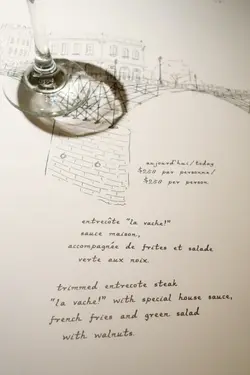 aujourd'hui/today
$228 par personne/
$228 per person
entrecôte "la vache!"
sauce maison,
accompagnée de frites et salade
verte aux noix.
trimmed entrecote steak
"la vache!" with special house sauce,
french fries and green salad
with walnuts.